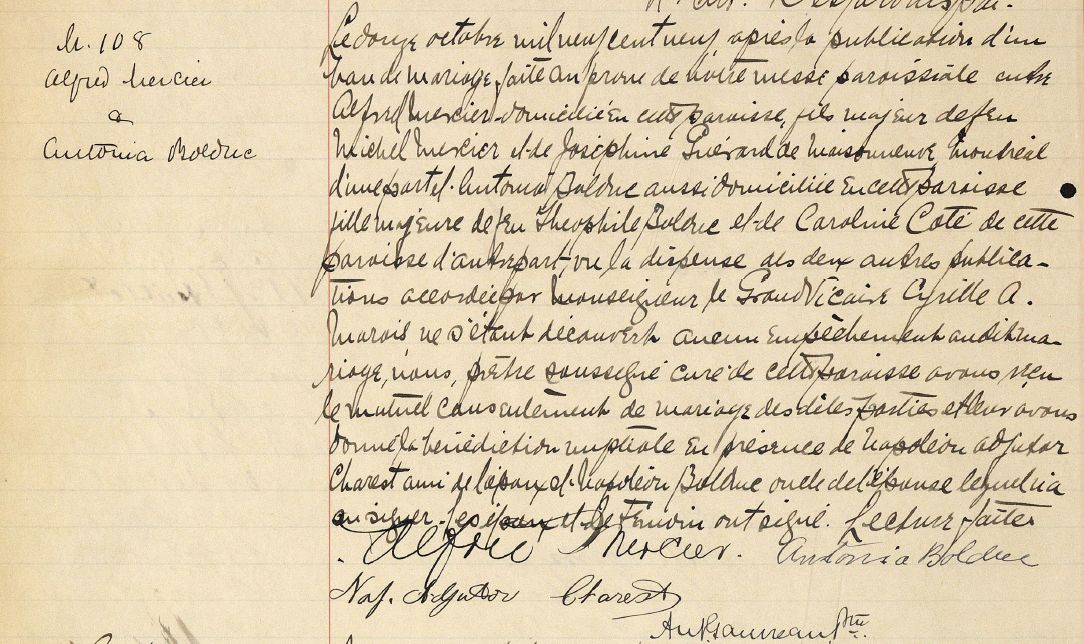 M. 108
Alfred Mercier
&
Antonia Bolduc
Le douze octobre mil neuf cent neuf, après la publication d'un
ban de mariage, faite au prone de notre messe paroissiale entre
Alfred Mercier domicilié en cette paroisse, fils majeur de feu
Michel Mercier et de Joséphine Guérard de Maisonneuve, Montréal
d'une part et Antonia Bolduc aussi domiciliée en cette paroisse
fille majeure de feu Théophile Bolduc et de Caroline Coté de cette
paroisse d'autre part, vu la dispense des deux autres publica-
tions accordée par Monseigneur le Grand Vicaire Cyrille A.
Marois, ne s'étant découvert aucun empêchement au dit ma-
riage, nous, prêtre soussigné curé de cette paroisse avons reçu
le mutuel consentement de mariage des dites parties et leur avons
donné la bénédiction nuptiale en présence de Napoléon Adjutor
Charest ami de l'époux et Napoléon Bolduc oncle de l'épouse lequel n'a
su signer. Les époux et le témoin ont signé. Lecture faite
Alfred Mercier. Antonia Bolduc
Nap. Adjutor Charest
Ptre.